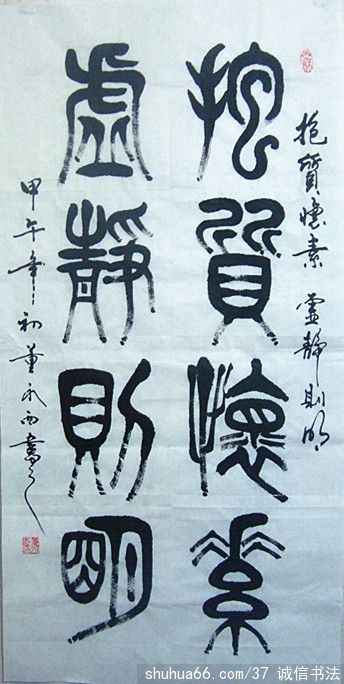 抱質懷素 虛靜則明
抱質懷素
虛靜則明
甲午年初董永西書之
shuhua66.com/37 诚信书法